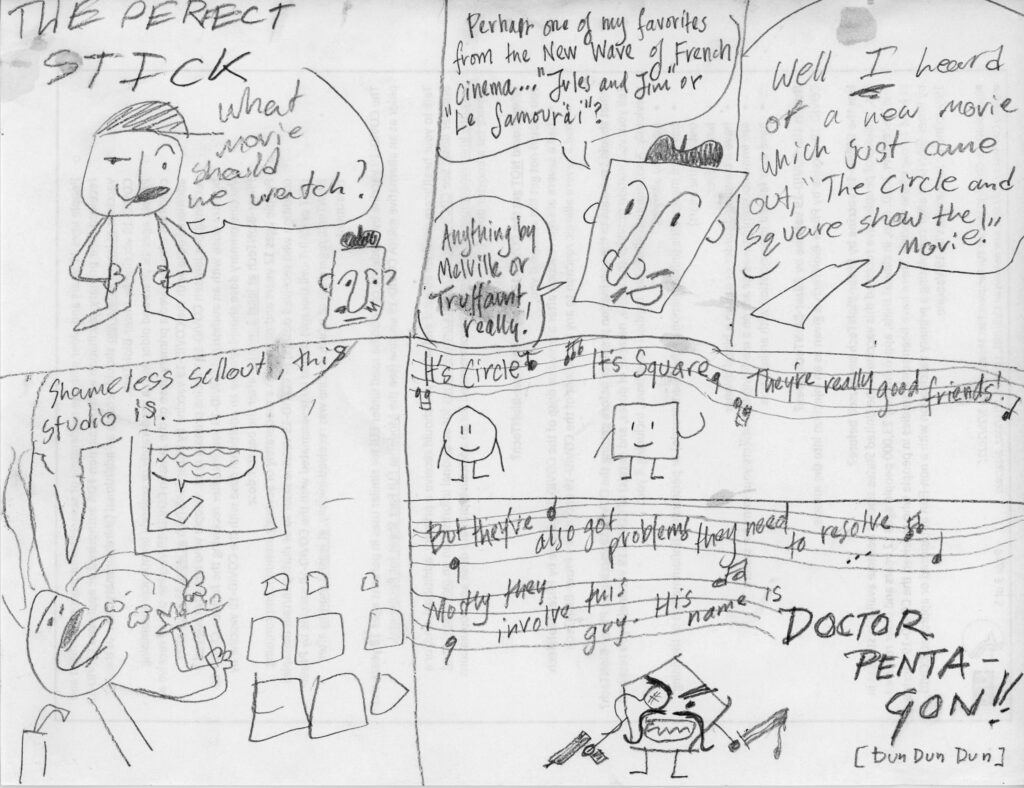 THE PERFECT
STICK
What
movie
should
we watch?
Perhaps one of my favorites
from the New Wave of French
Cinema... "Jules and Jim" or
"Le Samouraï"?
Anything by
Melville or
Truffaunt,
really!
Well I heard
of a new movie
which just came
out, "The Circle and
Square show the
Movie!"
Shameless sellout, this
studio is.
It's Circle
It's Square
They're really good friends!
But they've also got problems they need to resolve...
Mostly they involve this guy. His name is
DOCTOR
PENTA-
GON!!
[Dun Dun Dun]